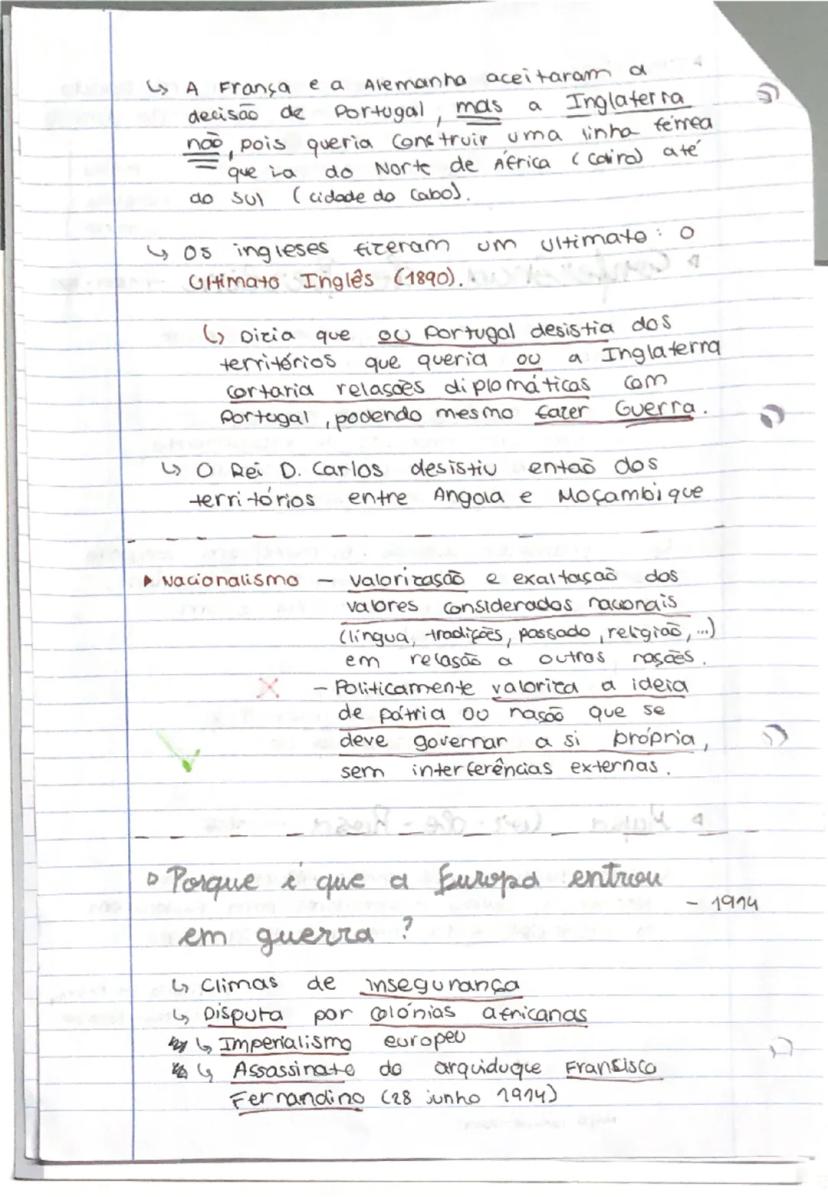 ↳ A França e a Alemanha aceitaram a
decisão de Portugal, mas a Inglaterra
não, pois queria construir uma linha férrea
que ia do Norte de África (Cairo) até
ao Sul (cidade do Cabo).
↳ Os ingleses fizeram um ultimato: O
Ultimato Inglês (1890).
↳ Dizia que ou Portugal desistia dos
territórios que queria ou a Inglaterra
cortaria relações diplomáticas com
Portugal, podendo mesmo fazer Guerra.
↳ O Rei D. Carlos desistiu então dos
territórios entre Angola e Moçambique
▸ Nacionalismo – valorização e exaltação dos
valores considerados nacionais
(língua, tradições, passado, religião, ...)
em relação a outras nações.
– Politicamente valoriza a ideia
de pátria ou nação que se
deve governar a si própria,
sem interferências externas.
▹ Porque é que a Europa entrou
em guerra? – 1914
↳ Climas de insegurança
↳ Disputa por colónias africanas
↳ Imperialismo europeu
↳ Assassinato do arquiduque Fransisco
Fernandino (28 junho 1914)